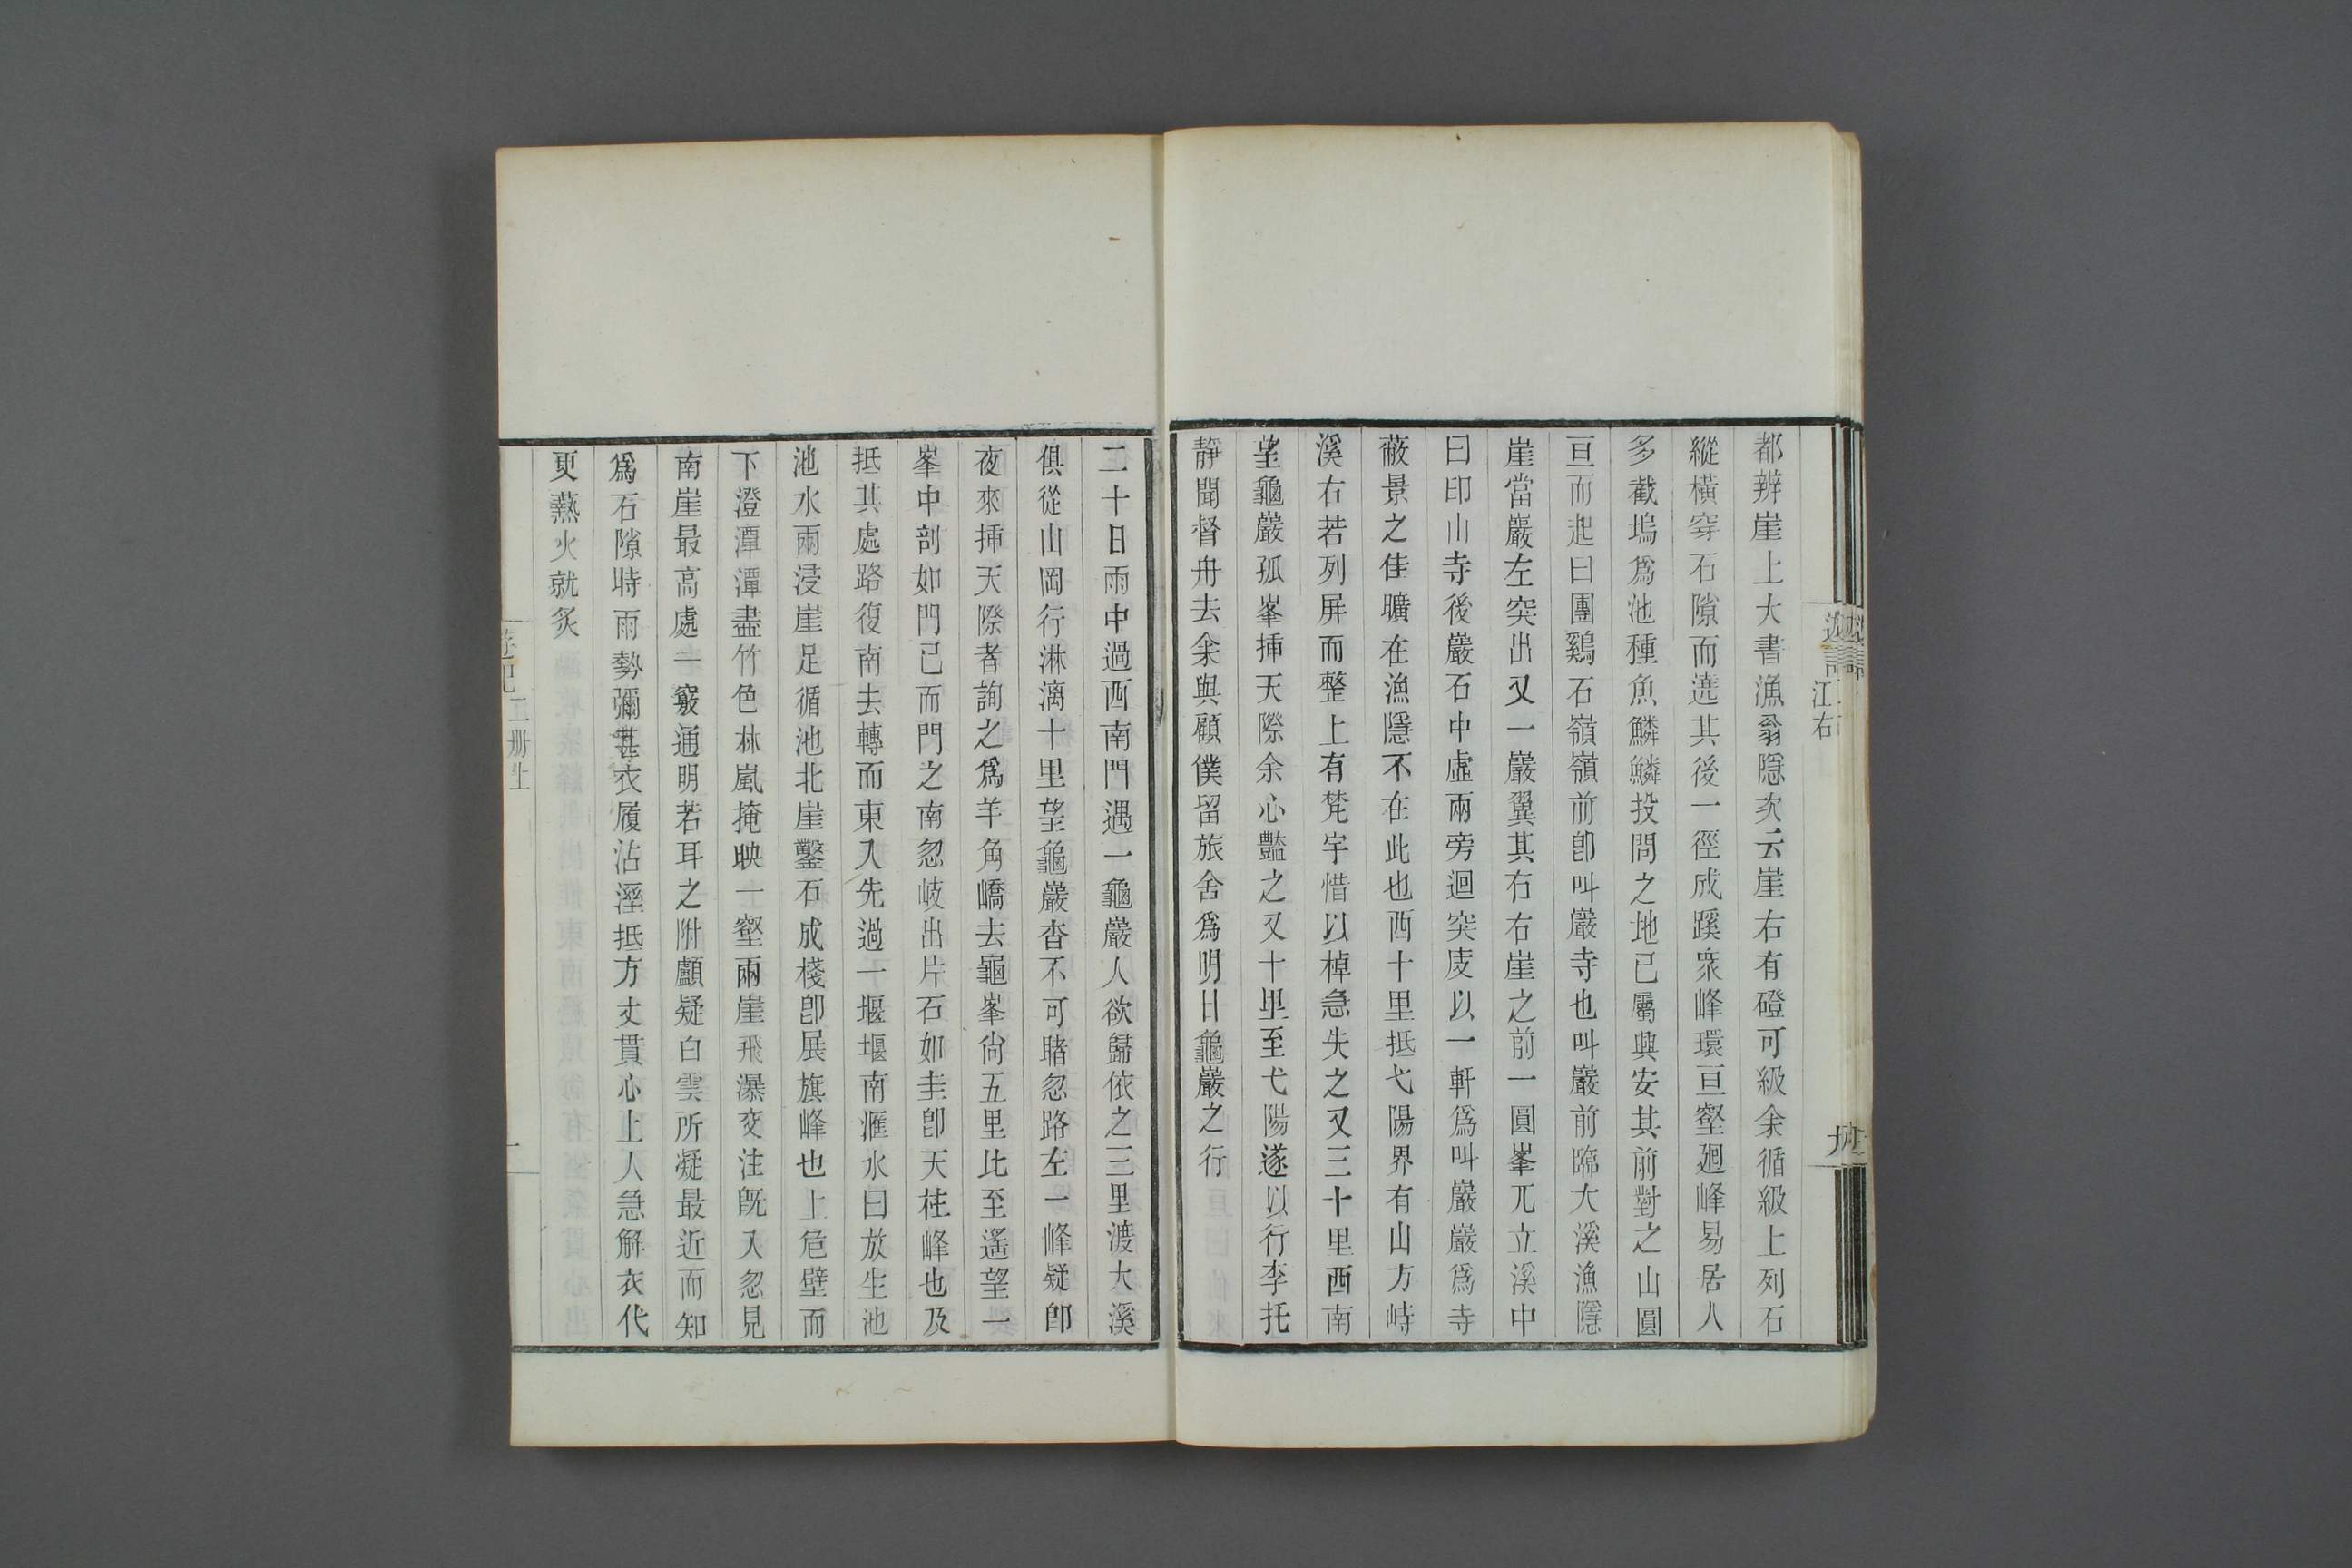 都辨崖上大書漁翁隱次云崖右有磴可級余循級上列石
縱橫穿石隙而遶其後一徑成蹊衆峰環亘壑廻峰易居人
多截塢爲池種魚鱗鱗投問之地已屬興安其前對之山圓
亘而起曰團鷄石嶺嶺前卽叫巖寺也叫巖前臨大溪漁隱
崖當巖左突出又一巖翼其右右崖之前一圓峯兀立溪中
曰印山寺後巖石中虛兩旁迴突庋以一軒爲叫巖巖爲寺
蔽景之佳曠在漁隱不在此也西十里抵弋陽界有山方峙
溪右若列屏而整上有梵宇惜以棹急失之又三十里西南
望龜巖孤峯揷天際余心豔之又十里至弋陽遂以行李托
靜聞督舟去余與顧僕留旅舍爲明日龜巖之行
二十日雨中過西南門遇一龜巖人欲歸依之三里渡大溪
俱從山岡行淋漓十里望龜巖杳不可睹忽路左一峰疑卽
夜來揷天際者詢之爲羊角嶠去龜峯尙五里比至遙望一
峯中剖如門已而門之南忽岐出片石如圭卽天柱峰也及
抵其處路復南去轉而東入先過一堰堰南滙水曰放生池
池水兩浸崖足循池北崖鑿石成棧卽展旗峰也上危壁而
下澄潭潭盡竹色林嵐掩映一壑兩崖飛瀑交注旣入忽見
南崖最高處一竅通明若耳之附顱疑白雲所凝最近而知
爲石隙時雨勢彌甚衣履沾溼抵方丈貫心上人急解衣代
更爇火就炙
江右
二册上